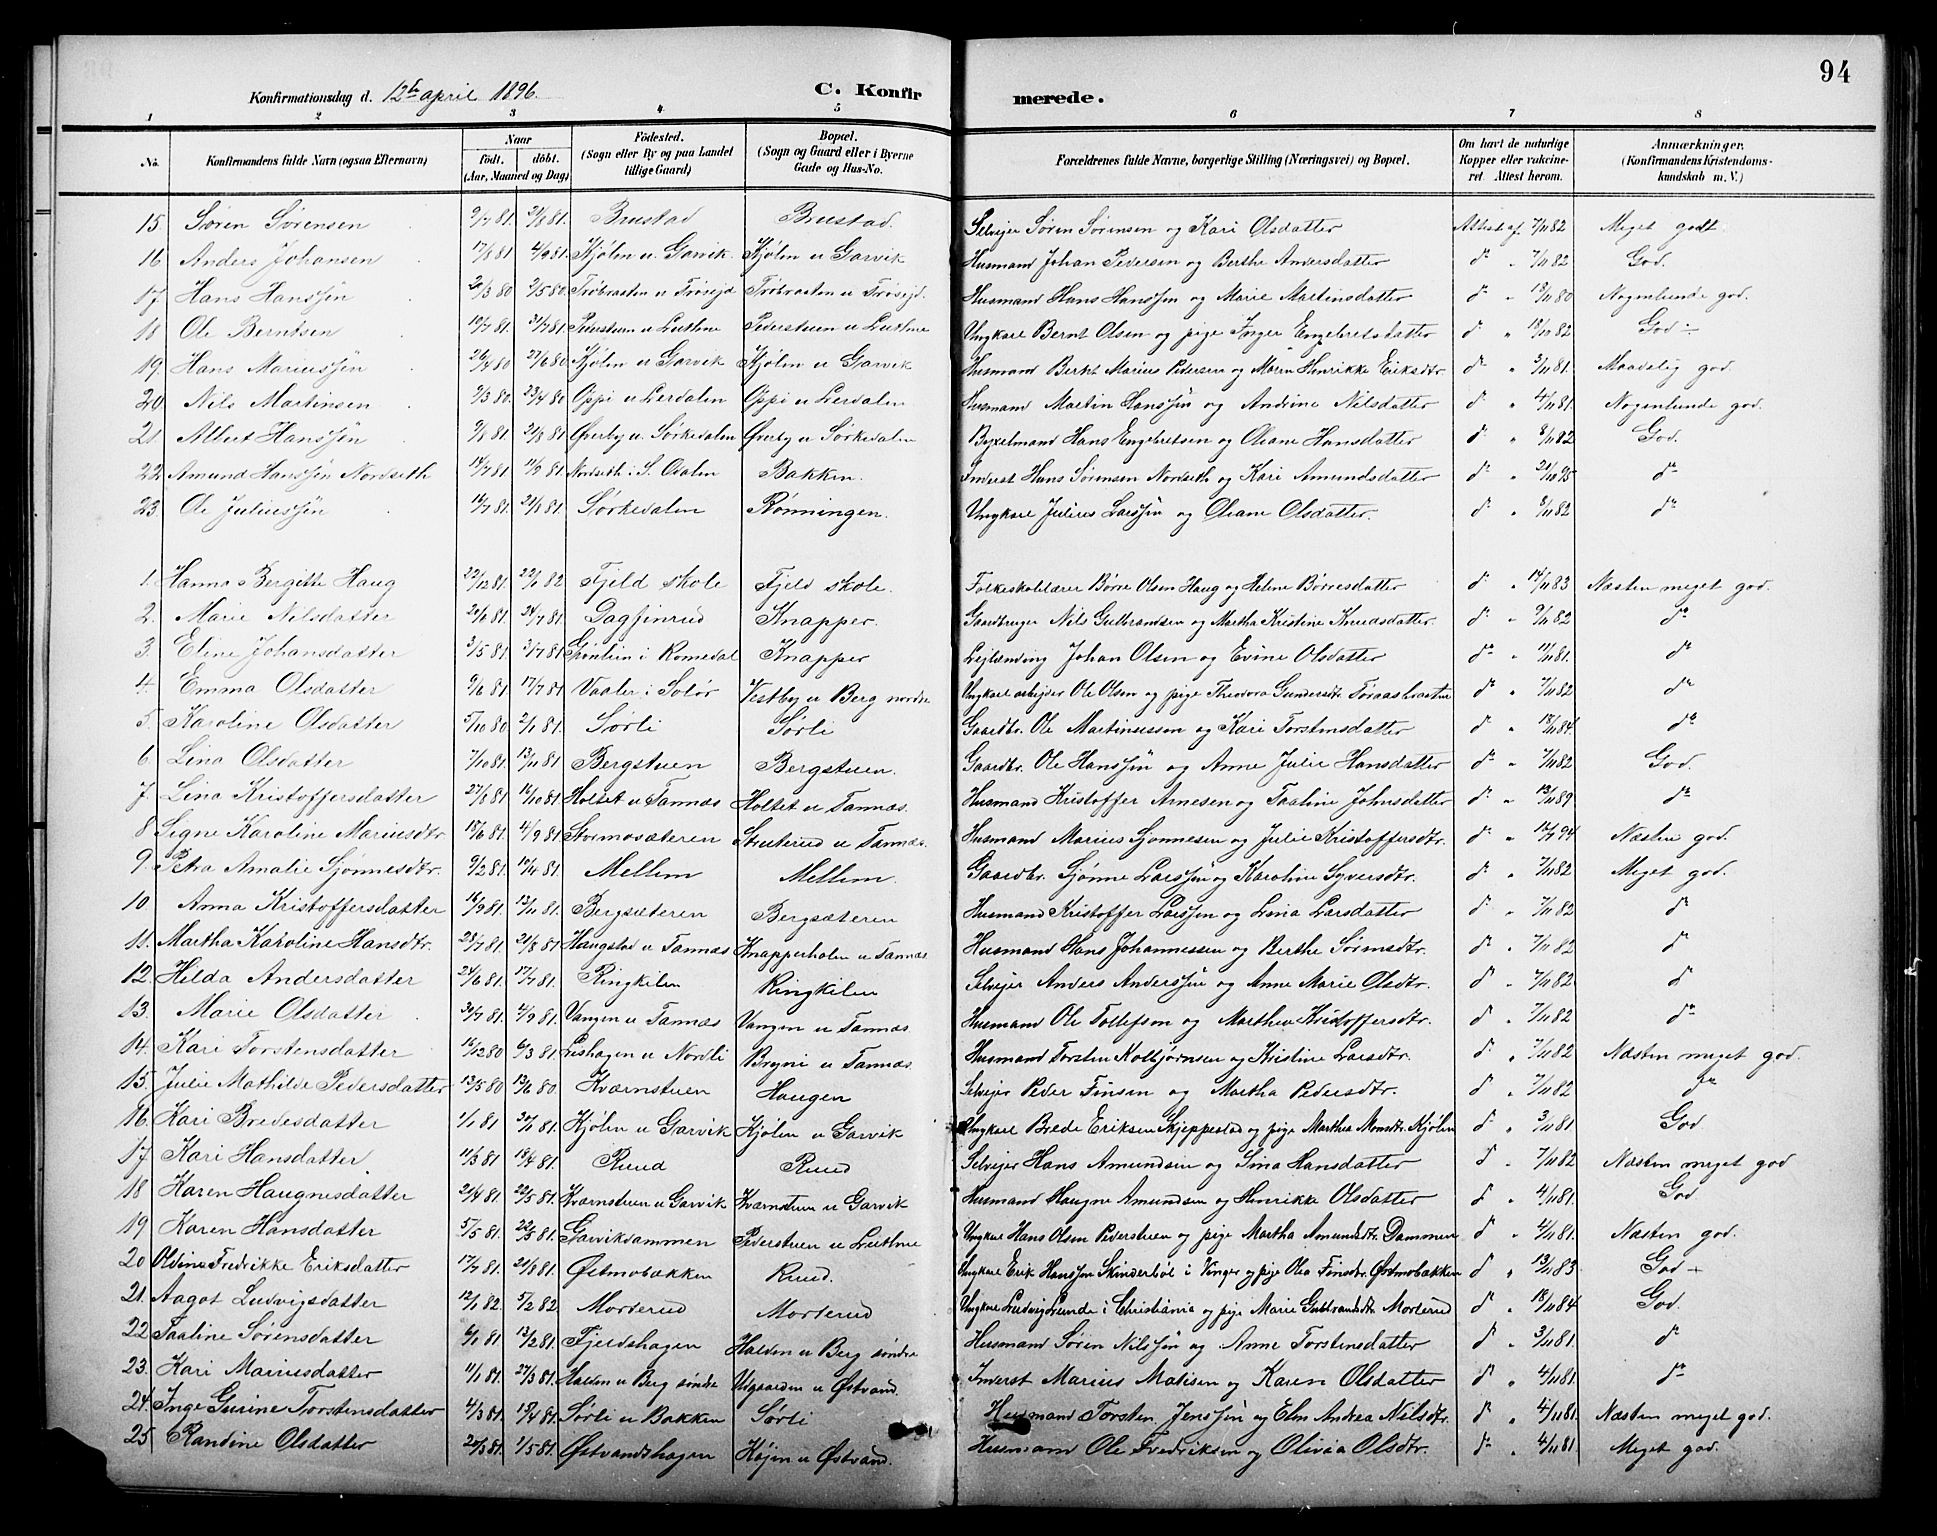 94
Konfirmationsdag d. 12te april 1896. C. Konfirmerede.
1 2 3 4 5 6 7 8
No. Konfirmandens fulde Navn (ogsaa Efternavn) Naar födt. döbt. (Aar, Maaned og Dag) Födested. (Sogn eller By og paa Landet tillige Gaard) Bopæl. (Sogn og Gaard eller i Byerne Gade og Hus-No. Forældrenes fulde Navne, borgerlige Stilling (Næringsvei) og Bopæl. Om havt de naturlige Kopper eller vakcineret Attest herom. Anmærkninger. (Konfirmandens Kristendomskundskab m. V.)
15 Søren Sørensen 9/7 81. 21/8 81. Brustad Brustad. Selvejer Søren Sørensen og Kari Olsdatter Attest af 7/11 82 Meget godt.
16 Anders Johansen 17/8 81 4/9 81 Kjølen u. Garvik. Kjølen u Garvik Husmand Johan Pedersen og Berthe Andersdatter d° " 7/11 82 God.
17 Hans Hanssøn 20/3 80 2/5 80 Husmand Hans Hanssøn og Marie Martinsdatter d° " 13/11 80 Nogenlunde god.
18 Ole Berntsen 19/7 81. 31/7 81. Pederstuen u Pederstuen u Ungkarl Bernt Olsen og pige Inger Engebretsdatter d° " 18/11 82 God ÷
19 Hans Mariussøn 26/4 80 27/6 80 Kjølen u Garvik Kjølen u Garvik Husmand Bernt Marius Pedersen og Maren Henrikke Eriksdtr. d° " 3/11 81. Maadelig god.
20 Nils Martinsen 9/3 80. 23/4 80 Oppi u Lerdalen Oppi u Lerdalen Husmand Martin Hanssøn og Andrine Nilsdatter d° " 4/11 81. Nogenlunde god.
21. Albert Hanssøn 9/8 81. 21/8 81 Øverby u. Sørkedalen Øverby u Sørkedalen Bygselmand Hans Engebretsen og Oleane Hansdatter d° " 8/11 82 God.
22 Amund Hanssøn Nordseth 14/7 81. 11/9 81. Nordseth i S. Odalen Bakken. Inderst Hans Sørensen Nordseth og Kari Amundsdatter d° " 21/10 95 d°
23. Ole Juliussøn 14/7 81. 21/8 81. Sørkedalen Rønningen. Ungkarl Julius Larssøn og Oleane Olsdatter. d° " 8/11 82 d°
1. Hanna Bergitte Haug 22/12 81. 22/1 82 Fjeld skole Fjeld skole. Folkeskolelærer Børre Olsen Haug og Helene Børresdatter d° " 14/11 83 Næsten meget god.
2. Marie Nilsdatter 20/6 81. 24/7 81. Dagfinrud Knapper. Gaardbruger Nils Gulbrandsen og Martha Kristine Knudsdatter. d° " 9/11 82 d°
3. Eline Johansdatter 3/5 81. 3/7 81 Grønlien i Romedal Knapper Lejlænding Johan Olsen og Evine Olsdatter d° " 11/11 81. d°
4. Emma Olsdatter 9/6 81. 17/7 81. Vaaler i Solør Vestby u Berg nordre Ungkarl arbejder Ole Olsen og pige Theodora Gundersdtr. d° " 7/11 82 d°
5. Karoline Olsdatter 5/10 80 2/1 81. Sørli Sørli Gaardbr. Ole Martinussen og Kari Torstensdatter d° " 18/11 84. d°
6. Lina Olsdatter 7/10 81. 13/11 81 Bergstuen Bergstuen. Gaardbr. Ole Hanssøn og Anne Julie Hansdatter d° " 7/11 82 God.
7. Lina Kristoffersdatter 27/8 81. 16/10 81. Holtet u Tannæs Holtet u Tannæs. Husmand Kristoffer Arnesen og Taaline Johnsdatter d° " 13/11 89. d°
8 Signe Karoline Mariusdtr. 18/6 81. 4/9 81. Stormosæteren Struterud u Tannæs. Husmand Marius Sjønnesen og Julie Kristoffersdtr. d° " 12/7 94 Næsten god.
9. Petra Amalie Sjønnesdtr. 9/2 81. 10/4 81. Mellem Mellem. Gaardbr. Sjønne Larssøn og Karoline Syversdtr. d° " 7/11 82 Meget god.
10 Anna Kristoffersdatter 16/9 81. 13/11 81. Bergsæteren Bergsæteren Husmand Kristoffer Larssøn og Lina Larsdatter d° " 7/11 82 d°
11. Martha Karoline Hansdtr. 23/7 81. 21/8 81 Haugstad u Tannæs Knapperholen u Tannæs Husmand Hans Johannessen og Berthe Sørensdtr. d° " 7/11 82 d°
12. Hilda Andersdatter 24/6 81. 17/7 81. Ringkilen Ringkilen Selvejer Anders Anderssøn og Anne Marie Olsdtr. d° " 7/11 82 d°
13. Marie Olsdatter 30/7 81. 4/9 81. Vangen u Tannæs Vangen u Tannæs Husmand Ole Tollefsen og Marthea Kristoffersdtr. d° " 7/11 82 d°
14. Kari Torstensdatter 16/12 80 6/3 81. Lishagen u Nordli Bryni u Tannæs Husmand Torsten Kolbjørnsen og Kristine Larsdtr. d° " 7/11 82 Næsten meget god.
15. Julie Mathilde Pedersdatter 13/5 80 13/6 80. Kværnstuen Haugen Selvejer Peder Finsen og Martha Pedersdtr. d° " 7/11 82 d°
16. Kari Bredesdatter 1/1 81 30/1 81. Kjølen u Garvik Kjølen u Garvik Ungkarl Brede Eriksen Skjeppestad og pige Martha Monsdtr. Kjølen d° " 3/11 81 God
17. Kari Hansdatter 11/3 81 18/4 81. Ruud Ruud Selvejer Hans Amundsen og Lina Hansdatter d° " 7/11 82 Næsten meget god
18 Karen Haugnesdatter 21/4 81. 22/5 81. Kværnstuen u Garvik Kværnstuen u Garvik Husmand Haugne Amundsen og Henrikke Olsdatter d° " 4/11 81. God
19. Karen Hansdatter 5/5 81. 22/5 81. Garvikdammen Pederstuen u Ungkarl Hans Olsen Pederstuen og pige Martha Amundsdtr. Dammen d° " 4/11 81. Næsten god.
20 Oldine Fredrikke Eriksdatter 17/7 81. 21/8 81. Østmobakken Ruud. Ungkarl Erik Hanssøn Skinderbøl i Vinger og pige Olea Finsdtr. Østmobakken d° " 13/11 83 God ÷
21. Aagot Ludvigsdatter 12/1 82. 5/2 82 Morterud Morterud Ungkarl Ludvig Lunde i Christiania og pige Marie Gulbrandsdtr Morterud d° " 18/11 84 God.
22 Taaline Sørensdatter 6/1 81 13/2 81. Fjeldshagen Halden u Berg søndre Husmand Søren Nilssøn og Anne Torstensdatter d° " 3/11 81. d°
23. Kari Mariusdatter 11/1 81. 27/3 81. Halden u Berg søndre Utgaarden u Østvand. Inderst Marius Matisen og Karen Olsdatter d° " 4/11 81. d°
24. Inge Gurine Torstensdatter 4/3 81. 18/4 81. Sørli u Bakken Sørli Husmand Torsten Jenssøn og Elen Andrea Nilsdtr. d° " 4/11 81. Næsten meget god.
25. Randine Olsdatter 20/3 81. 1/5 81. Østvandshagen Kojen u Østvand. Husmand Ole Fredriksen og Olivia Olsdtr. d° " 4/11 81. Meget god.